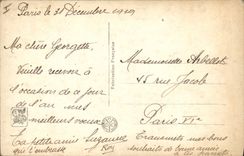 Paris le 31 Décembre 1919
Ma chère Georgette,
Veuille recevoir à
l'occasion de ce jour
de l'an mes
meilleurs vœux
Ta petite amie Suzanne
qui t'embrasse
Mademoiselle
15 rue Jacob
Paris VIe
Transmets mes bons
souhaits de bonne année
à tes parents